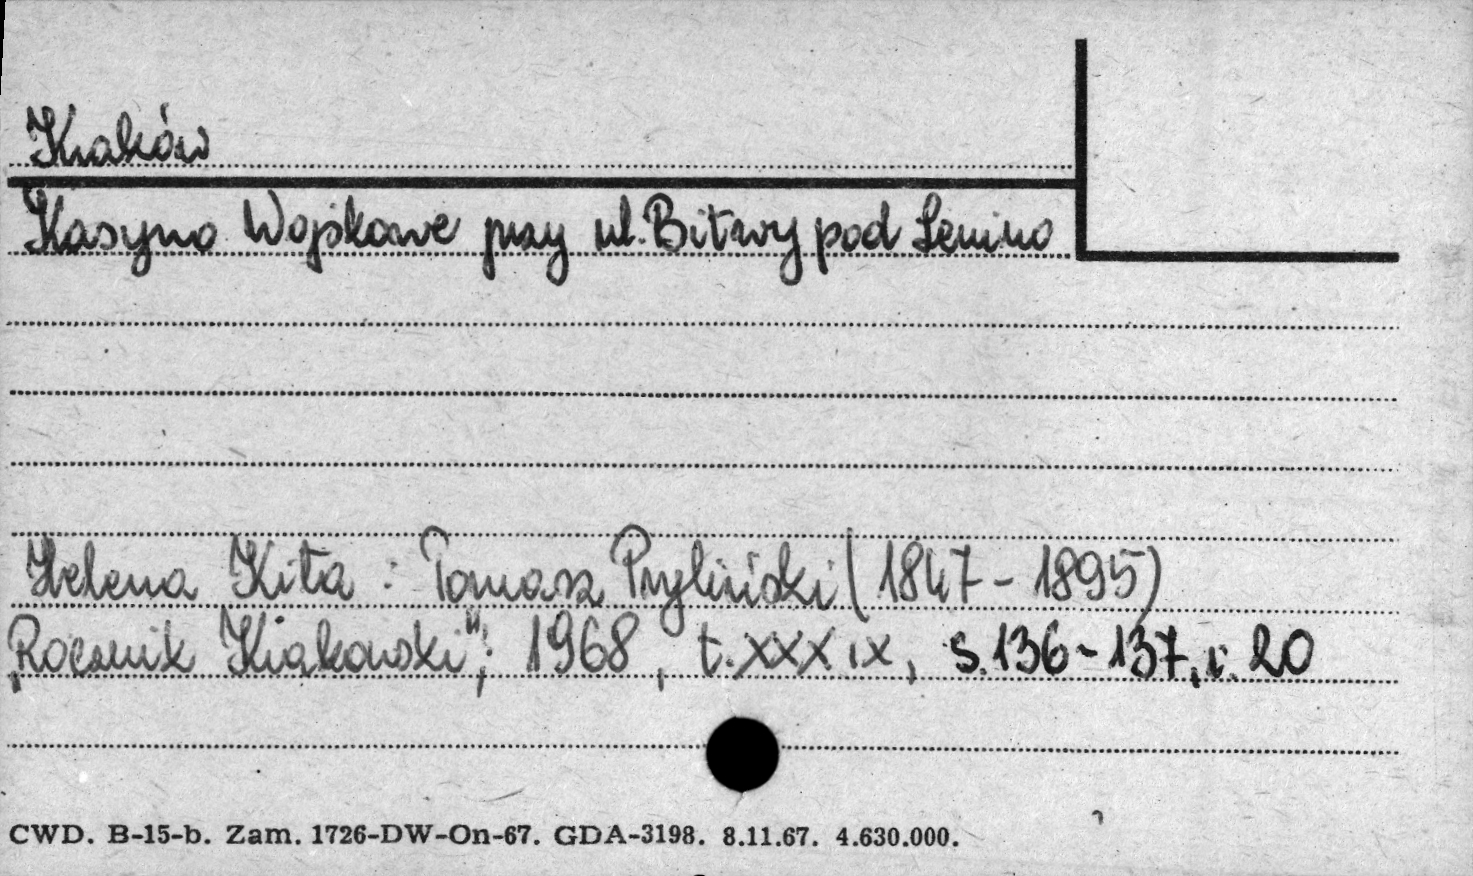 Kraków
Kasyno Wojskowe przy ul. Bitwy pod Lenino
Helena Kita: Tomasz Pryliński (1847-1895)
„Rocznik Krakowski”; 1968, t. XXXIX, s. 136-137, i. 20
CWD. B-15-b. Zam. 1726-DW-On-67. GDA-3198. 8.11.67. 4.630.000.